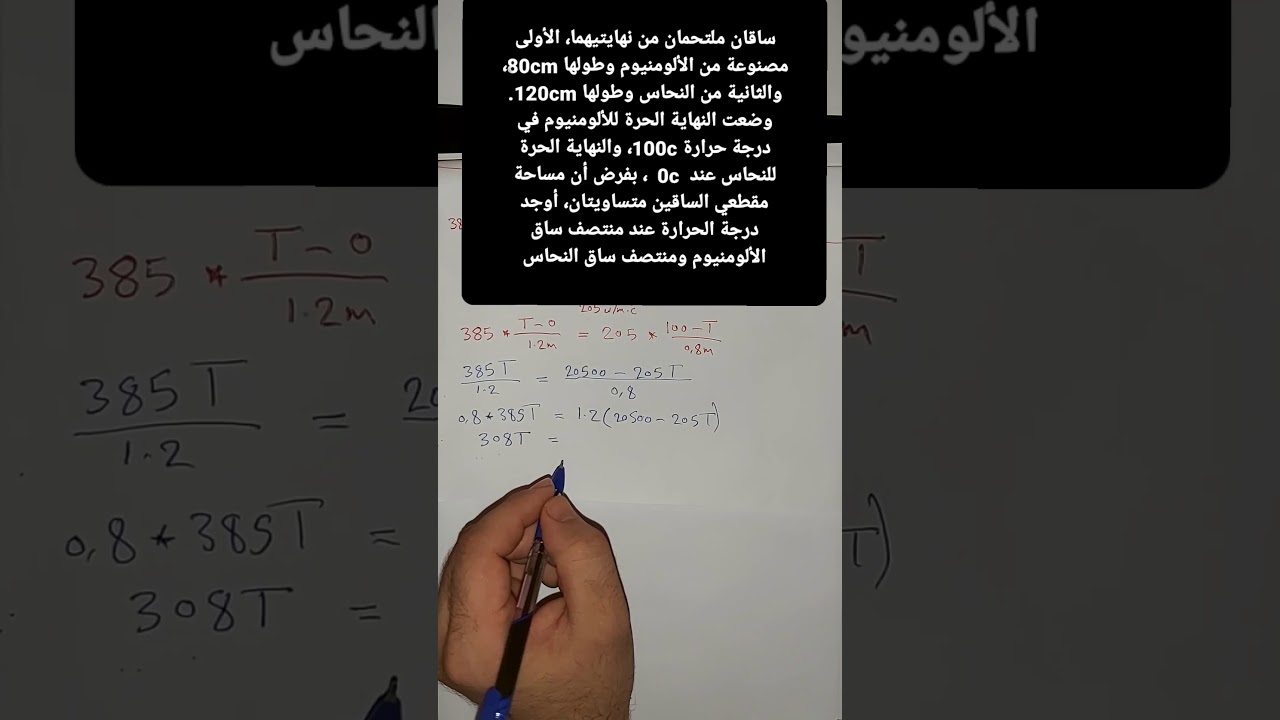 ساقان ملتحمان من نهايتيهما، الأولى
مصنوعة من الألومنيوم وطولها 80cm،
والثانية من النحاس وطولها 120cm.
وضعت النهاية الحرة للألومنيوم في
درجة حرارة 100c، والنهاية الحرة
للنحاس عند 0c ، بفرض أن مساحة
مقطعي الساقين متساويتان، أوجد
درجة الحرارة عند منتصف ساق
الألومنيوم ومنتصف ساق النحاس
385 * T-0/1.2m = 205 * 100-T/0,8m
385T/1.2 = 20500 - 205T/0,8
0,8 * 385T = 1.2(20500 - 205T)
308T =
النحاس
385 * T-0/1.2m
385T/1.2 =
0,8 * 385T =
308T =